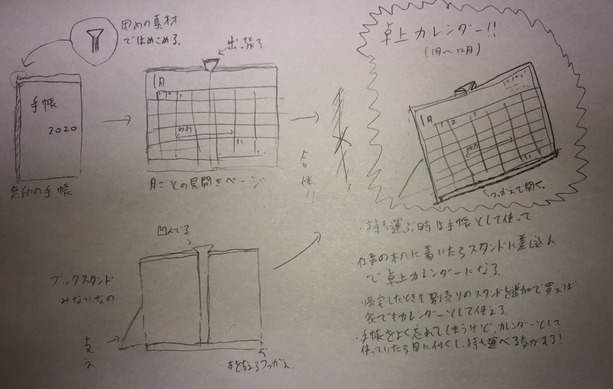 固めの素材
で はめこめる.
手帳
2020
無印の手帳
出っ張り
1月
月ごとの見開きページ
合体!!
卓上カレンダー!!
(1月〜12月)
1月
つっかえて開く.
凹んでる
ブックスタンド
みたいなの
支え
・持ち運ぶ時は手帳として使って
仕事の机に着いたらスタンドに差し込ん
で卓上カレンダーになる.
帰宅したときも別売りのスタンドを追加で買えば
家でもカレンダーとして使える
手帳をよく忘れてしまうけど、カレンダーとして
使っていたら目に付くし、持ち運べる